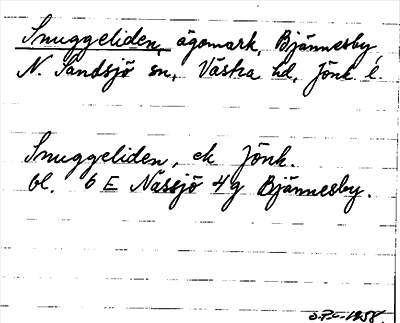 Snuggeliden, ägomark, Bjännesby,
N. Sandsjö sn, Västra hd, Jönk. l.
Snuggeliden, ek Jönk.
bl. 6 E Nässjö 4g Bjännesby.
1958.